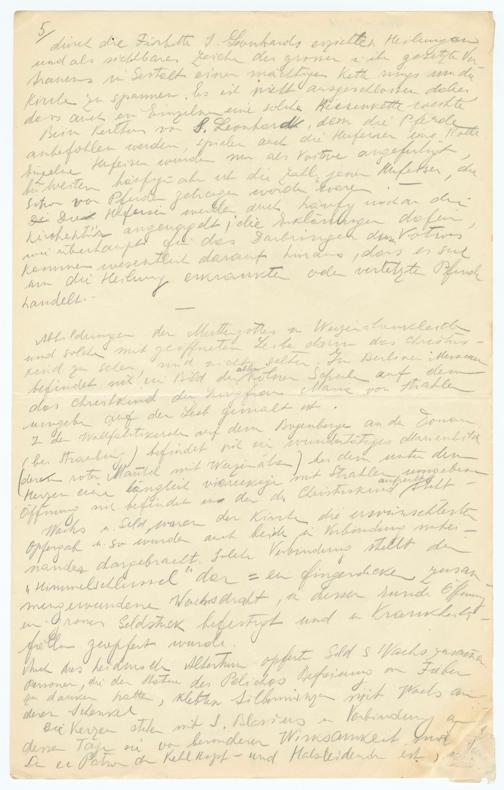 5/
durch die Fürbitte S. Leonhards erzielten Heilungen
und als sichtbares Zeichen des grossen in ihn gesetzten Ver-
trauens in Gestalt einer mächtigen Kette rings um die
Kirche zu spannen. Es ist nicht ausgeschlossen daher
dass auch ein Einzelner eine solche Riesenkette
Beim Kultus von S. Leonhard, dem die Pferde
anbefohlen werden, spielen auch die Hufeisen eine Rolle
Einzelne Hufeisen wurden nur als Votive angefertigt,
bei Weitem häufiger ist die Zahl jener Hufeisen, die
schon von Pferden getragen worden waren.
Die Hufeisen werden auch häufig an den
Kirchentüren angenagelt; die Erklärungen dafür,
wie überhaupt für das Darbringen des Votives
kommen wesentlich darauf hinaus, dass es sich
um die Heilung erkrankter oder verletzter Pferde
handelt.
—
Abbildungen der Muttergottes im Weizenährenkleide
und solche mit geöffnetem Leibe darin das Christus-
kind zu sehen, sind nicht selten. Im Berliner Museum
befindet sich ein Bild der alten Kölner Schule auf dem
das Christkind der Jungfrau Maria von Strahlen
umgeben auf den Leib gemalt ist.
In der Wallfahrtskirche auf dem Bogenberge an der Donau
(bei Straubing) befindet sich ein wundertätiges Marienbild
(deren roter Mantel mit Weizenähren) bei dem unter dem
Herzen eine länglich viereckige mit Strahlen umgebene
Öffnung sich befindet in der das Christuskind aufrecht steht.-
Wachs u. Geld waren der Kirche die erwünschtesten
Opfergaben u. so wurden auch beide in Verbindung mitei-
nander dargebracht. Solche Verbindung stellt der
"Himmelschlüssel" dar = ein fingerdicker zusam-
mengewundener Wachsdraht, in dessen runde Öffnung
ein grosses Geldstück befestigt und in Krankheits-
fällen geopfert wurde.
Auch das heidnische Altertum opferte Geld & Wachs zusammen
Personen, die der Statue des Pelichos Befreiung von Fieber
zu danken hatten, klebten Silbermünzen mit Wachs an
deren Schenkel
Die Kerzen stehen mit S. Blasius in Verbindung an
dessen Tage sie von besonderer Wirksamkeit sind
Da er Patron der Kehlkopf- und Halsleidenden ist,